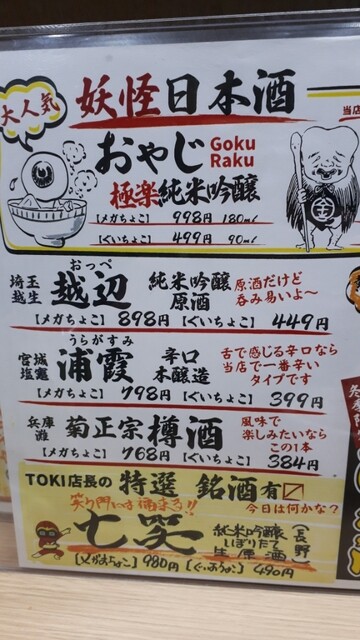 大人気
妖怪日本酒
当店
おやじ Goku Raku
極楽純米吟醸
【メガちょこ】 998円 180ml
【ぐいちょこ】 499円 90ml
金
埼玉 越生 おっぺ 越辺 純米吟醸 原酒 原酒だけど 呑み易いよ〜
【メガちょこ】 898円 【ぐいちょこ】 449円
宮城 塩竈 うらがすみ 浦霞 辛口 本醸造 舌で感じる辛口なら 当店で一番辛い タイプです
【メガちょこ】 798円 【ぐいちょこ】 399円
兵庫 灘 菊正宗 樽酒 風味で 楽しみたいなら この1本
【メガちょこ】 768円 【ぐいちょこ】 384円
TOKI店長の 特選 銘酒 有☑
今日は何かな?
笑う門には福来る!!
七笑 純米吟醸 しぼりたて 生原酒 (長野)
【メガちょこ】 980円 【ぐいちょこ】 490円